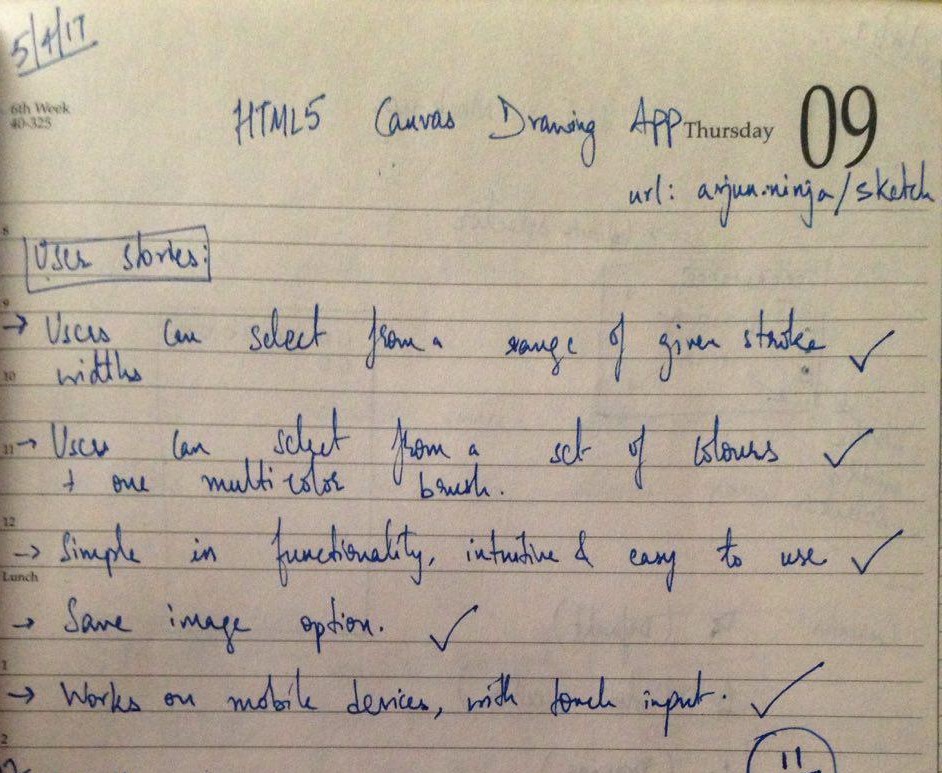 5/4/17
6th Week
40-325
HTML5 Canvas Drawing App
Thursday 09
url: arjun.ninja/sketch
8
User stories:
9
→ Users can select from a range of given stroke ✓
10 widths
11 → Users can select from a set of colours ✓
+ one multicolor brush.
12
→ Simple in functionality, intuitive & easy to use ✓
Lunch
→ Save image option. ✓
1
→ Works on mobile devices, with touch input. ✓
2